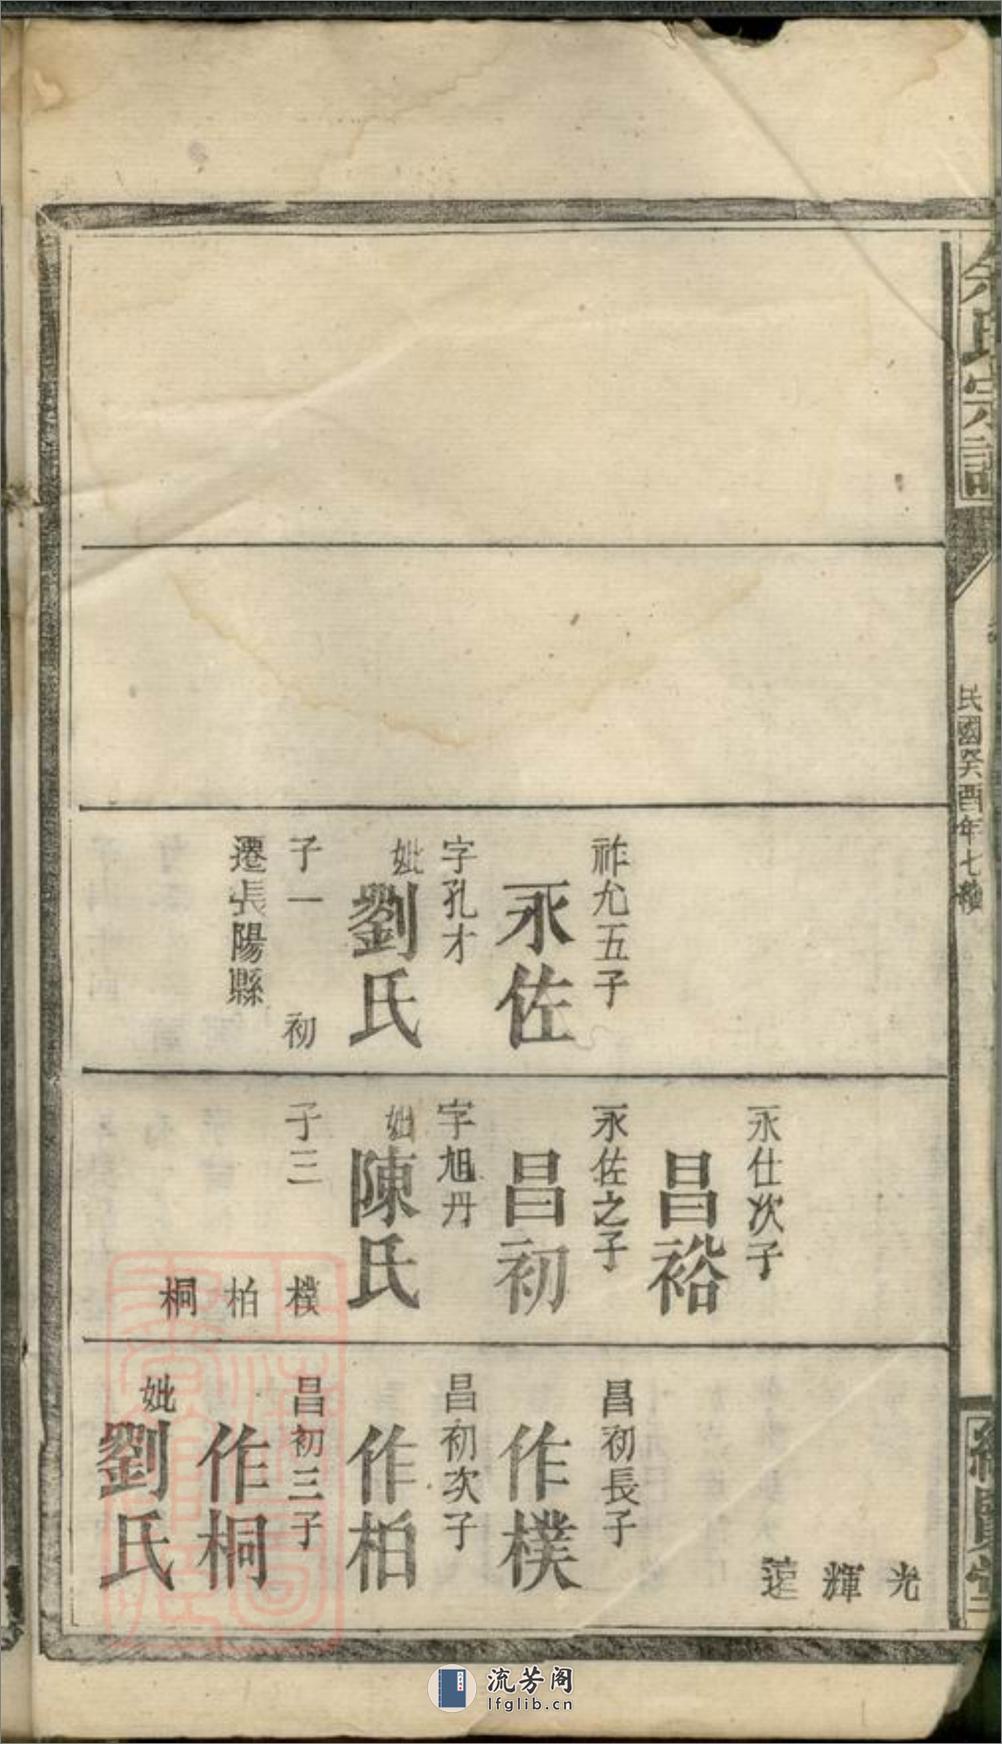 余氏宗譜
民國癸酉年七續
祚允五子
永佐
字孔才
妣
劉氏
子一 初
遷長陽縣
永仕次子
昌裕
永佐之子
昌初
字旭丹
妣
陳氏
子三 樸
柏
桐
光
輝
昌初長子
作樸
昌初次子
作柏
昌初三子
作桐
妣
劉氏
流芳阁
lfglib.cn